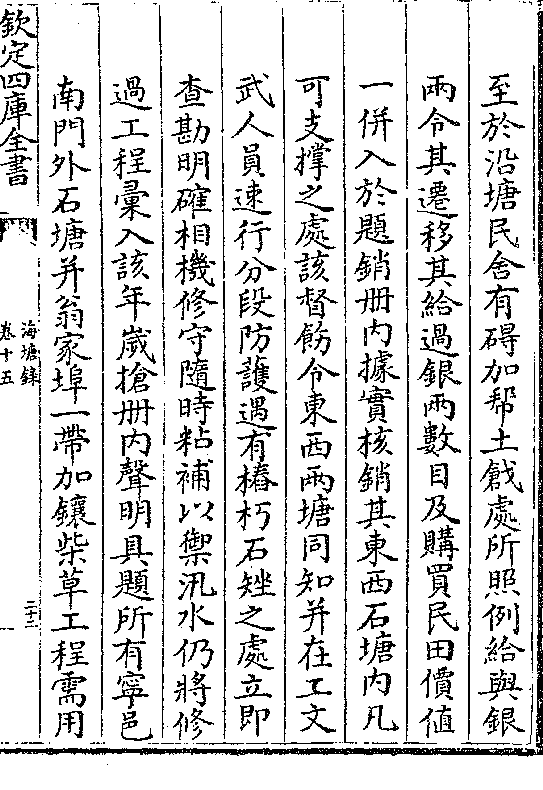 至於沿塘民舍有碍加帮土戧處所照例給與銀
兩令其遷移其給過銀兩數目及購買民田價值
一併入於題銷册内據實核銷其東西石塘内凡
可支撑之處該督飭令東西兩塘同知并在工文
武人員速行分段防護遇有樁朽石矬之處立即
查勘明確相機修守隨時粘補以禦汛水仍將修
過工程彙入該年歲搶册内聲明具題所有寧邑
南門外石塘并翁家埠一帶加鑲柴草工程需用
欽定四庫全書
海塘録
卷十五
三十三